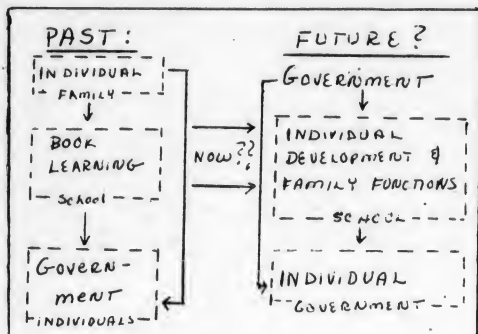 PAST:
INDIVIDUAL
FAMILY
BOOK
LEARNING
School
GOVERN-
MENT
INDIVIDUALS
NOW??
FUTURE?
GOVERNMENT
INDIVIDUAL
DEVELOPMENT &
FAMILY FUNCTIONS
SCHOOL
INDIVIDUAL
GOVERNMENT